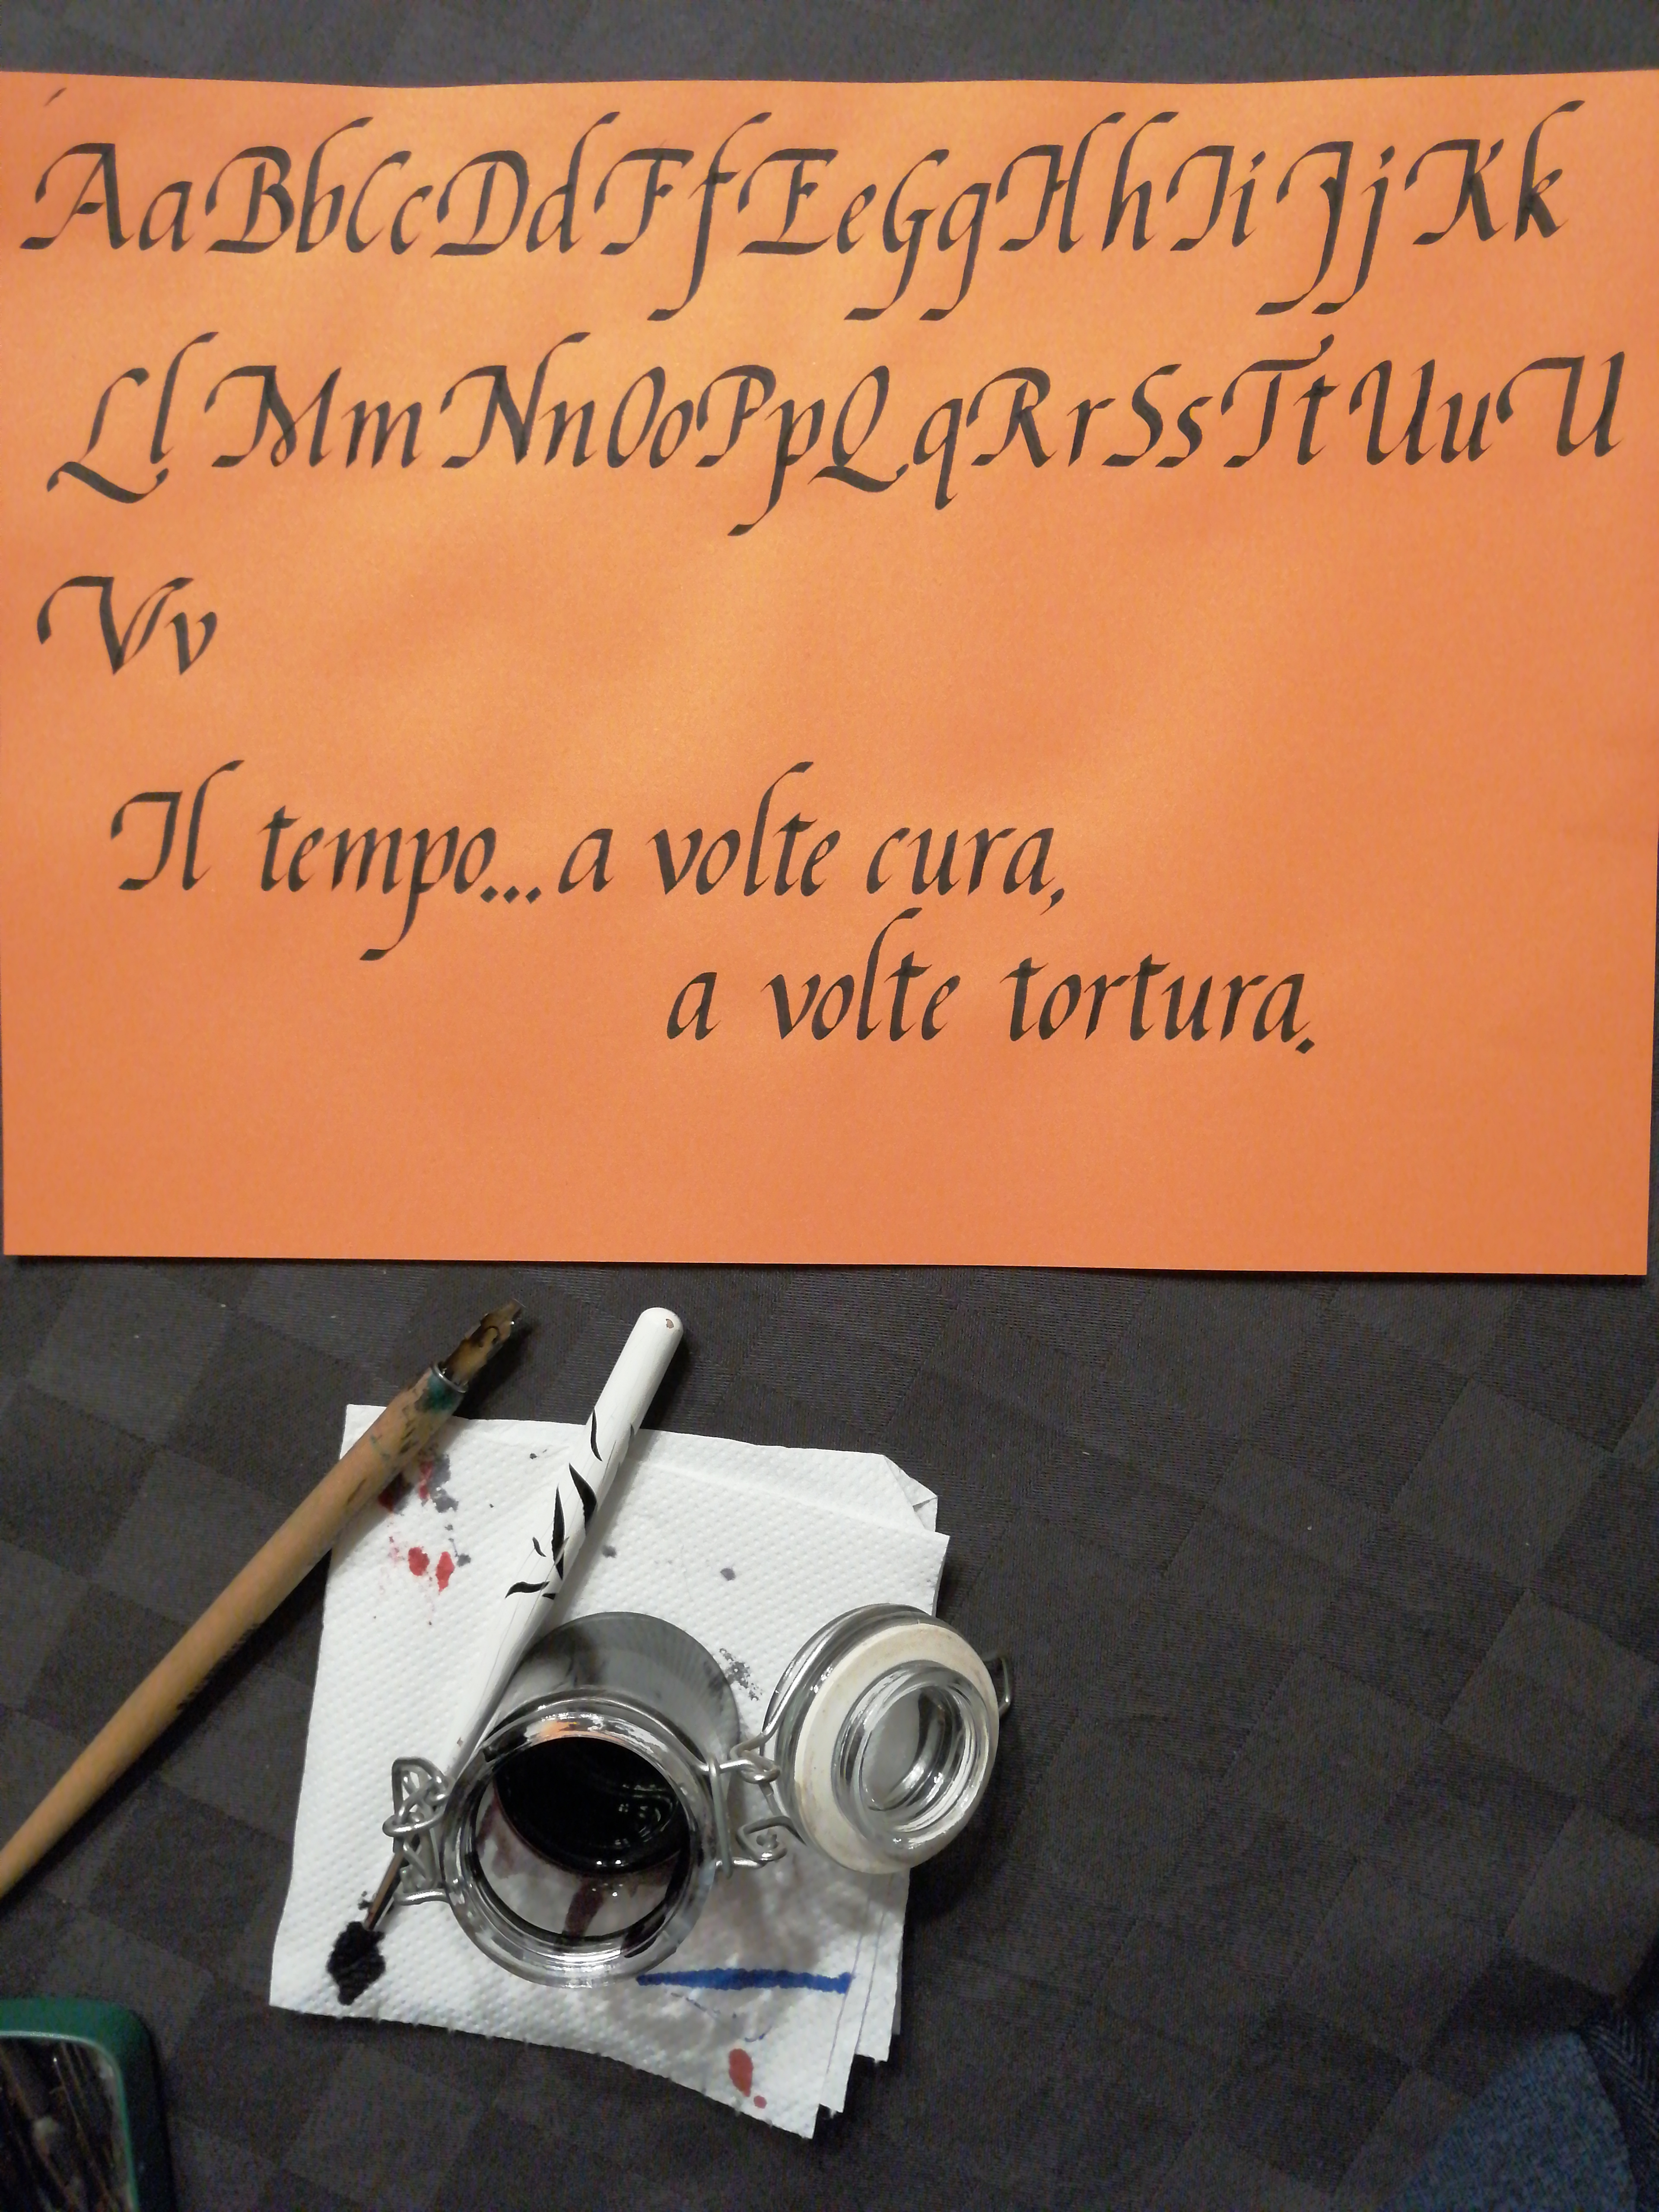 AaBbCcDdFfEeGgHhIiJjKk
LlMmNnOoPpQqRrSsTtUuU
Vv
Il tempo...a volte cura,
a volte tortura.